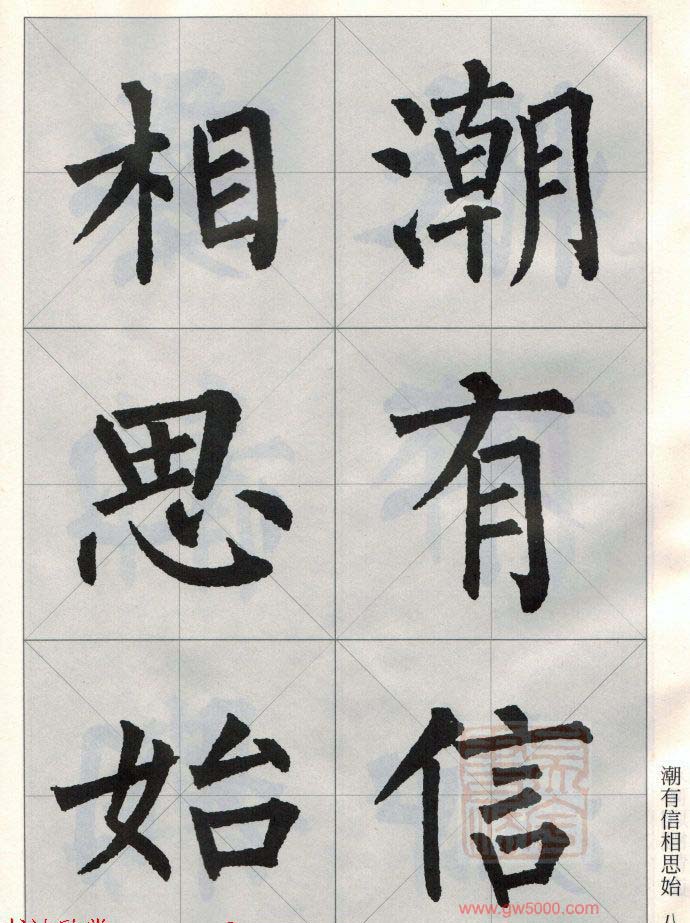 潮有信
相思始
潮有信相思始
八
www.gw5000.com